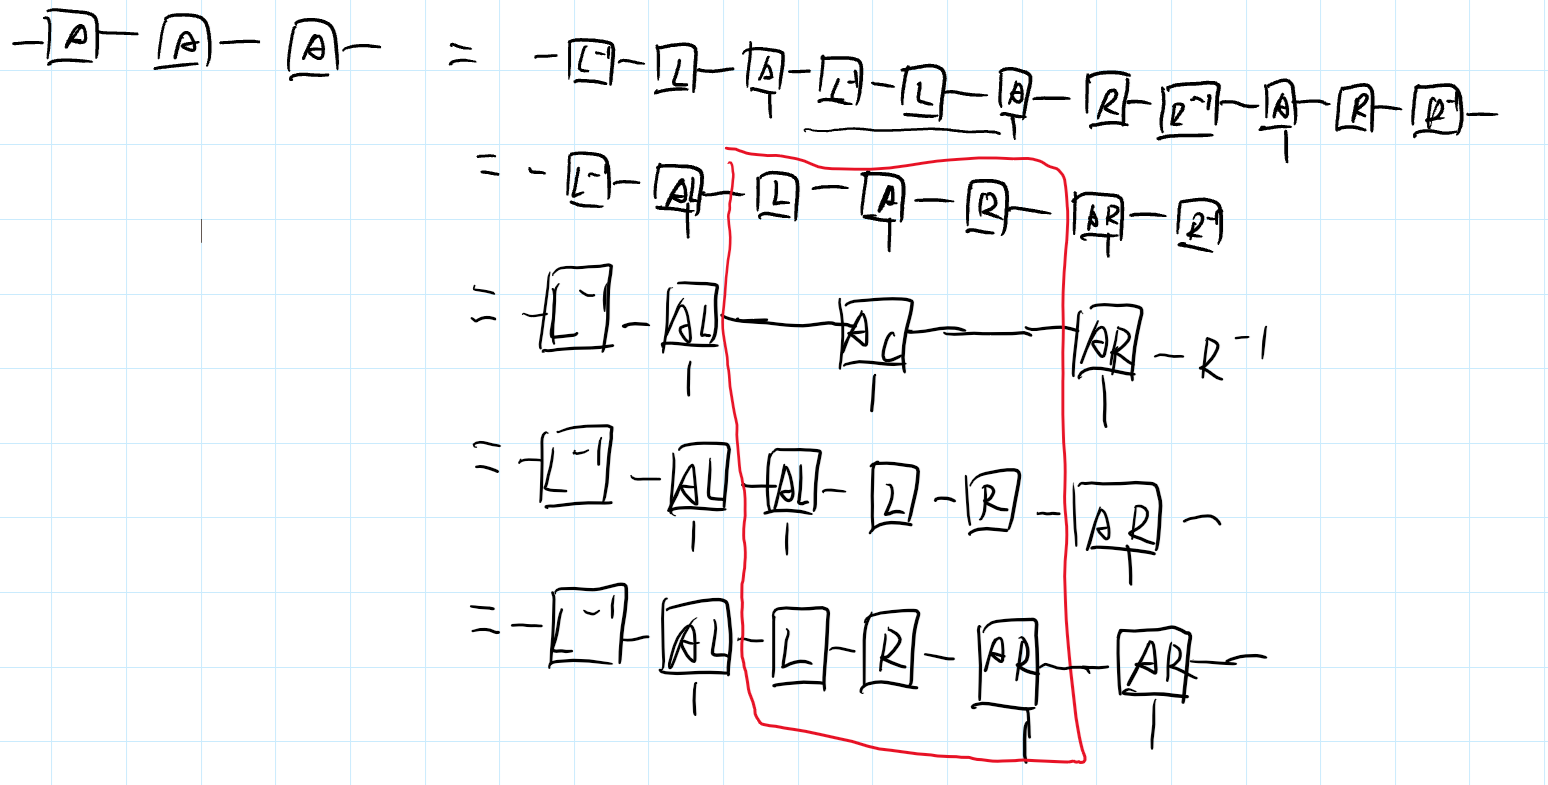 -A- A- A- = -L⁻¹-L-A-L⁻¹-L-A-R-R⁻¹-A-R-R⁻¹-
= -L⁻¹-AL-L-A-R-AR-R⁻¹
= -L⁻¹-AL-AC-AR-R⁻¹
= -L⁻¹-AL-AL-L-R-AR-
= -L⁻¹-AL-L-R-AR-AR-